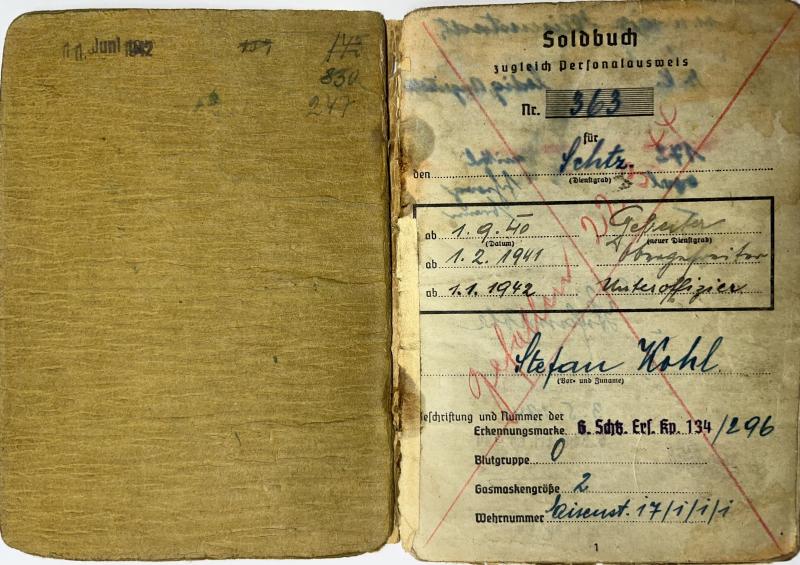 11. Juni 1942
151
142
830
247
Soldbuch
zugleich Personalausweis
Nr. 363
für
den Schtz.
(Dienstgrad)
ab 1.9.40 Gefreiter
(Datum) (neuer Dienstgrad)
ab 1.2.1941 Obergefreiter
ab 1.1.1942 Unteroffizier
gefallen
Stefan Kohl
(Vor- und Zuname)
Beschriftung und Nummer der
Erkennungsmarke 6. Schtz. Ers. Kp. 134/296
Blutgruppe 0
Gasmaskengröße 2
Wehrnummer Eisenst. 17/1/1/1
1